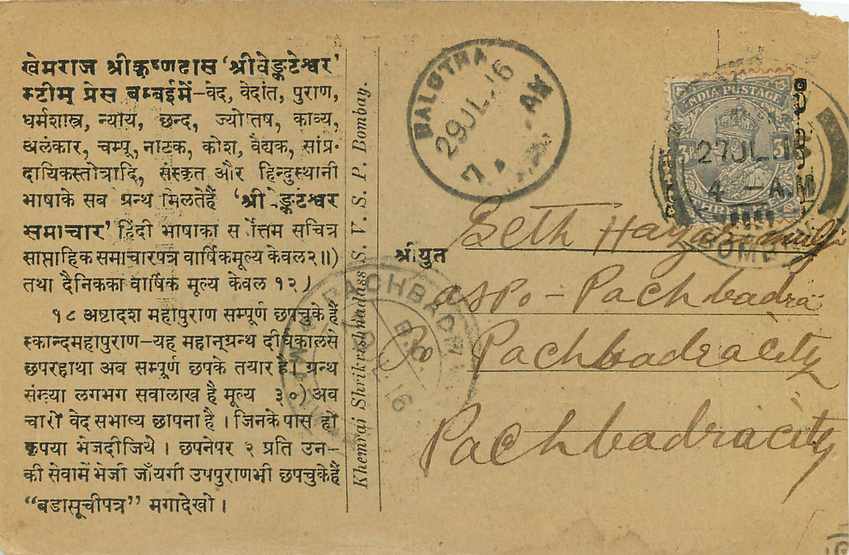 खेमराज श्रीकृष्णदास ‘श्रीवेङ्कटेश्वर’
स्टीम् प्रेस बम्बईमें–वेद, वेदांत, पुराण,
धर्मशास्त्र, न्याय, छन्द, ज्योतष, काव्य,
अलंकार, चम्पू, नाटक, कोश, वैद्यक, सांप्र-
दायिकस्तोत्रादि, संस्कृत और हिन्दुस्थानी
भाषाके सब ग्रन्थ मिलतेहैं ‘श्री ङ्कटेश्वर
समाचार’ हिंदी भाषाका स र्वोत्तम सचित्र
साप्ताहिक समाचारपत्र वार्षिकमूल्य केवल२॥)
तथा दैनिकका वार्षिक मूल्य केवल १२)
१८ अष्टादश महापुराण सम्पूर्ण छपचुके हैं
स्कान्दमहापुराण–यह महान्ग्रन्थ दीर्घकालसे
छपरहाथा अब सम्पूर्ण छपके तयार है। ग्रन्थ
संख्या लगभग सवालाख है मूल्य ३०) अब
चारों वेद सभाष्य छापना है । जिनके पास हो
कृपया भेजदीजिये । छपनेपर २ प्रति उन–
की सेवामें भेजी जाँयगी उपपुराणभी छपचुकेहैं
“बडासूचीपत्र” मगादेखो ।
Khemraj Shrikrishnadass S. V. S. P. Bombay.
BALOTRA
29 JL 16
7 AM
INDIA POSTAGE
27 JL 16
4 - A.M
BOMBAY
श्रीयुत
Seth
at Po - Pachbadra
Po Pachbadra city
Pachbadra city
PACHBADRA
16